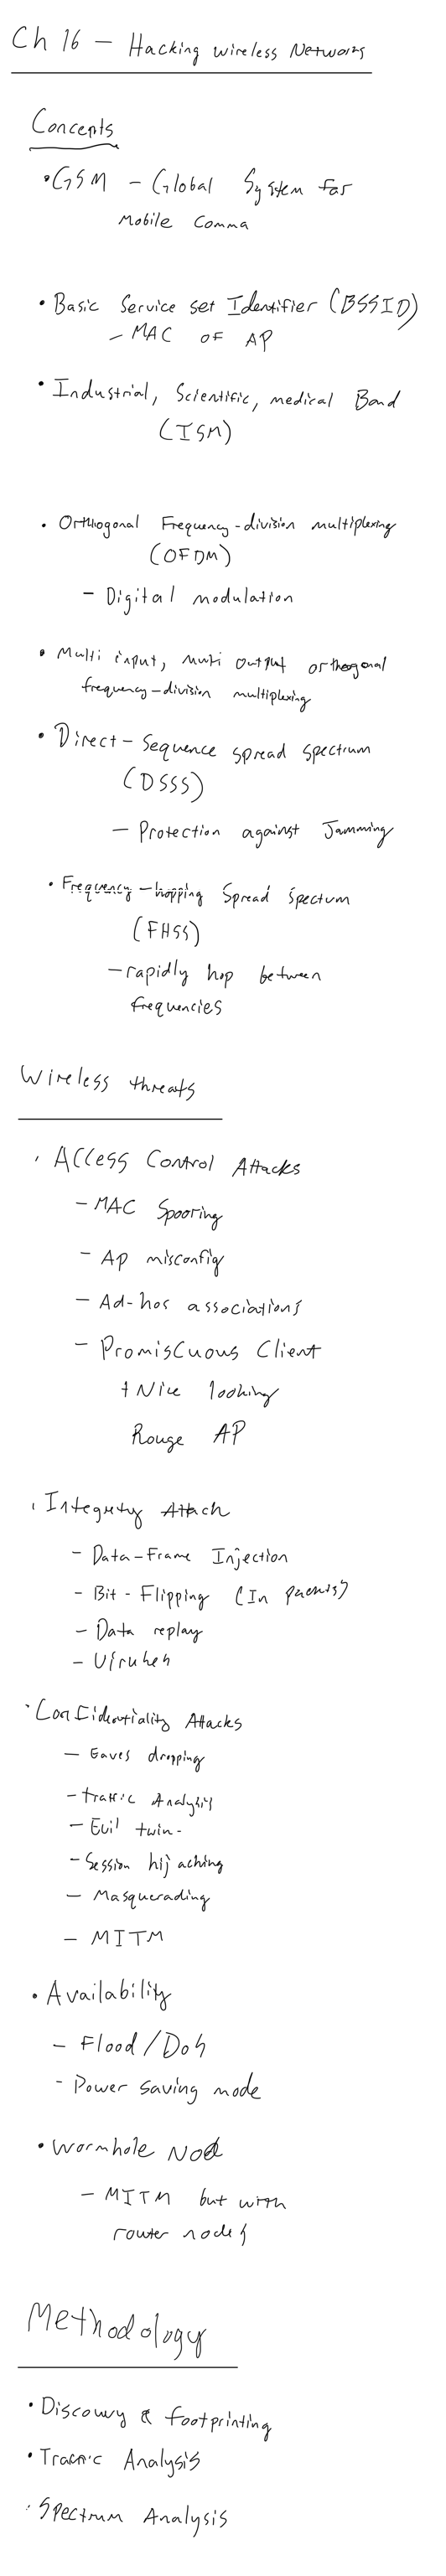 Ch 16 - Hacking wireless Networks
Concepts
• GSM - Global System for
Mobile Comma
• Basic Service set Identifier (BSSID)
- MAC OF AP
• Industrial, Scientific, medical Band
(ISM)
• Orthogonal Frequency-division multiplexing
(OFDM)
- Digital modulation
• Multi input, multi output orthogonal
frequency-division multiplexing
• Direct-Sequence spread spectrum
(DSSS)
- Protection against Jamming
• Frequency-hopping Spread Spectum
(FHSS)
- rapidly hop between
frequencies
Wireless threats
• Access Control Attacks
- MAC Spoofing
- Ap misconfig
- Ad-hoc associations
- Promiscuous Client
+ Nice looking
Rouge AP
• Integrity Attack
- Data-Frame Injection
- Bit-Flipping (In packets)
- Data replay
- Viruses
• Confidentiality Attacks
- Eaves dropping
- traffic Analysis
- Evil twin
- Session hijacking
- Masquerading
- MITM
• Availability
- Flood/DoS
- Power saving mode
• Wormhole Node
- MITM but with
router nodes
Methodology
• Discovery & footprinting
• Traffic Analysis
• Spectrum Analysis